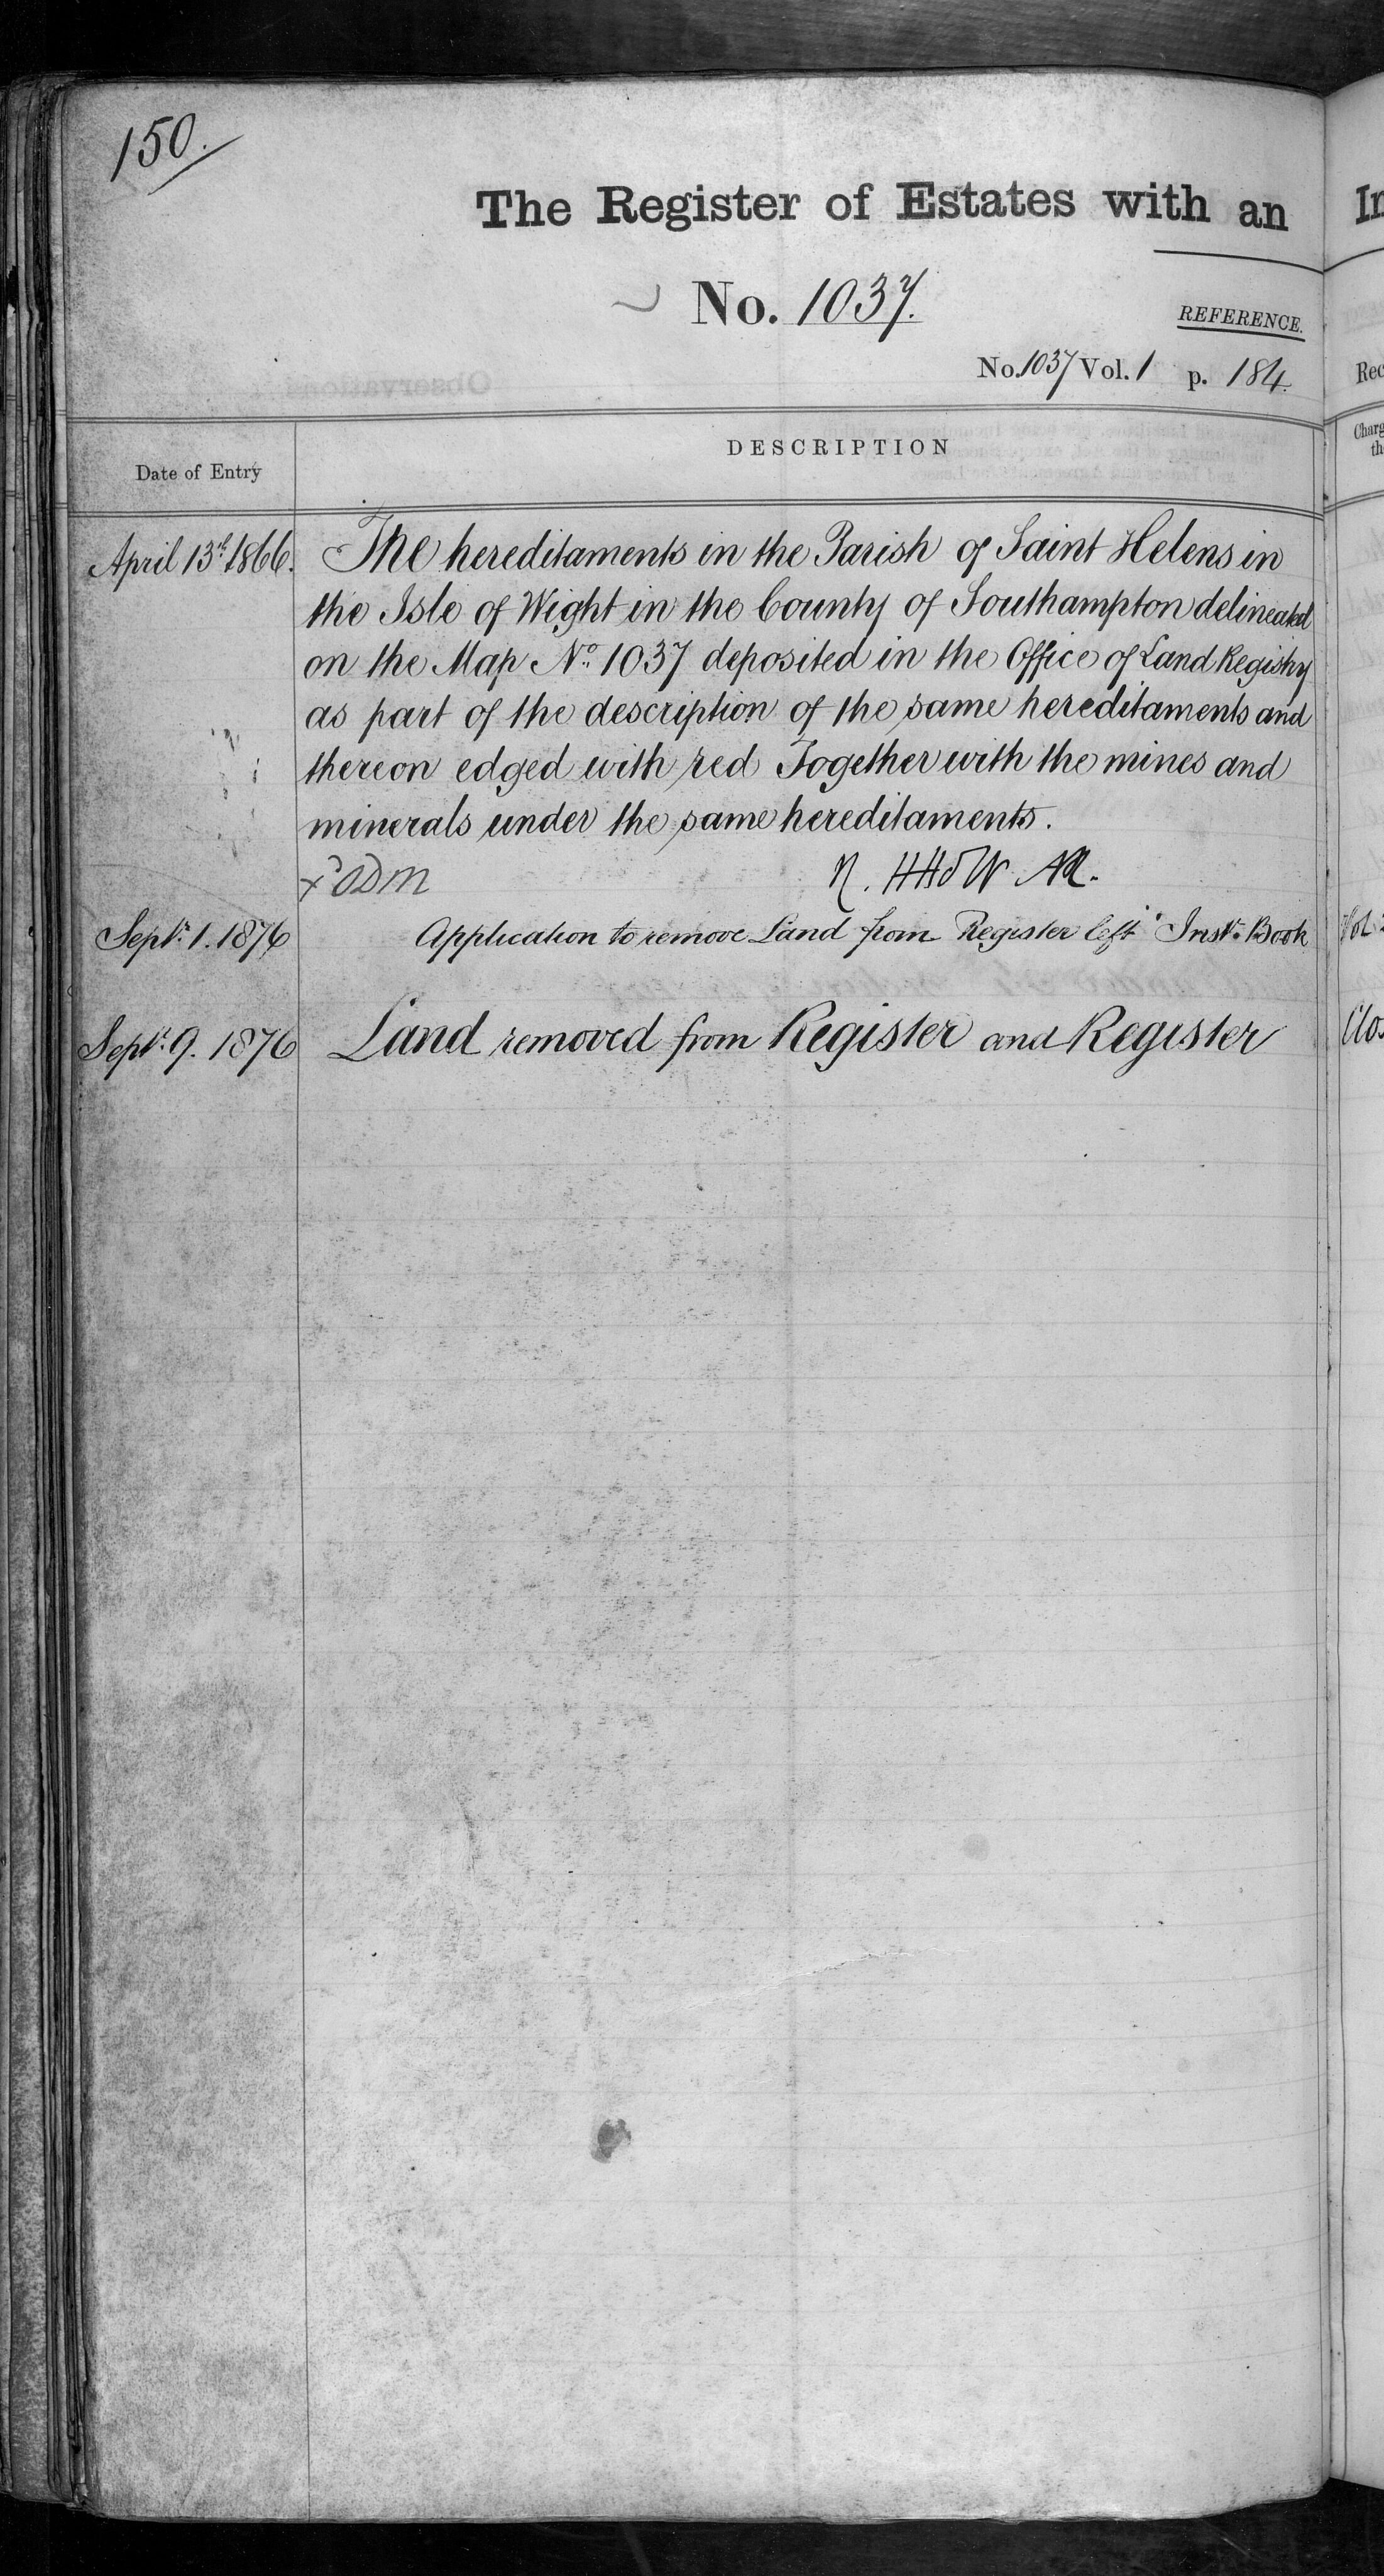 150.
The Register of Estates with an
In
No. 1037.
REFERENCE.
No. 1037 Vol. 1 p. 184.
Rec
Date of Entry
DESCRIPTION
Charg
th
April 13th 1866. The hereditaments in the Parish of Saint Helens in
the Isle of Wight in the County of Southampton delineated
on the Map No. 1037 deposited in the Office of Land Registry
as part of the description of the same hereditaments and
thereon edged with red Together with the mines and
minerals under the same hereditaments.
Septr. 1. 1876 Application to remove Land from Register left Instt. Book
Vol
Septr. 9. 1876 Land removed from Register and Register
Clos